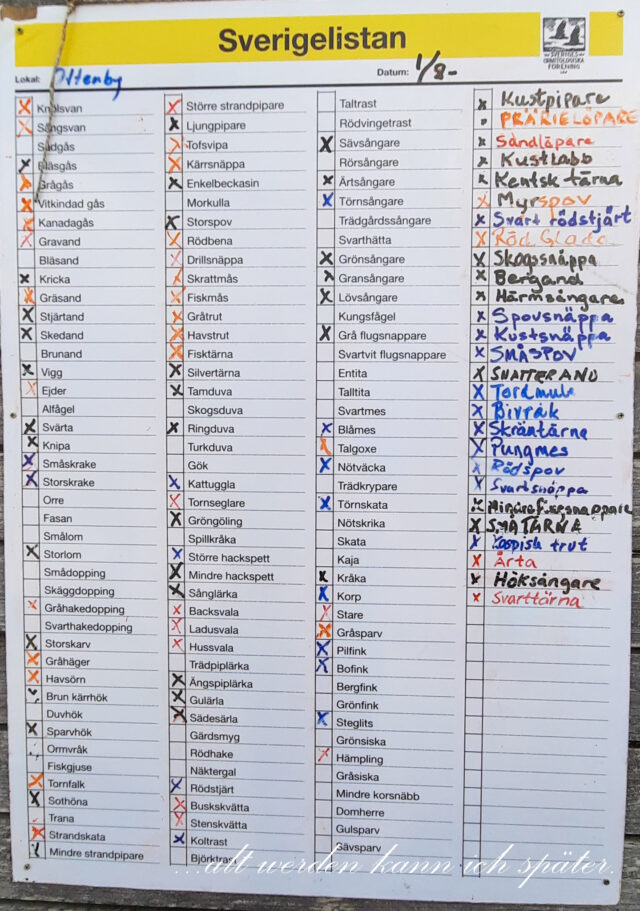 Sverigelistan
SVERIGES
ORNITOLOGISKA
FÖRENING
Lokal: Ottenby
Datum: 1/8-
Knölsvan
Sångsvan
Sädgås
Bläsgås
Grågås
Vitkindad gås
Kanadagås
Gravand
Bläsand
Kricka
Gräsand
Stjärtand
Skedand
Brunand
Vigg
Ejder
Alfågel
Svärta
Knipa
Småskrake
Storskrake
Orre
Fasan
Smålom
Storlom
Smådopping
Skäggdopping
Gråhakedopping
Svarthakedopping
Storskarv
Gråhäger
Havsörn
Brun kärrhök
Duvhök
Sparvhök
Ormvråk
Fiskgjuse
Tornfalk
Sothöna
Trana
Strandskata
Mindre strandpipare
Större strandpipare
Ljungpipare
Tofsvipa
Kärrsnäppa
Enkelbeckasin
Morkulla
Storspov
Rödbena
Drillsnäppa
Skrattmås
Fiskmås
Gråtrut
Havstrut
Fisktärna
Silvertärna
Tamduva
Skogsduva
Ringduva
Turkduva
Gök
Kattuggla
Tornseglare
Gröngöling
Spillkråka
Större hackspett
Mindre hackspett
Sånglärka
Backsvala
Ladusvala
Hussvala
Trädpiplärka
Ängspiplärka
Gulärla
Sädesärla
Gärdsmyg
Rödhake
Näktergal
Rödstjärt
Buskskvätta
Stenskvätta
Koltrast
Björktrast
Taltrast
Rödvingetrast
Sävsångare
Rörsångare
Ärtsångare
Törnsångare
Trädgårdssångare
Svarthätta
Grönsångare
Gransångare
Lövsångare
Kungsfågel
Grå flugsnappare
Svartvit flugsnappare
Entita
Talltita
Svartmes
Blåmes
Talgoxe
Nötväcka
Trädkrypare
Törnskata
Nötskrika
Skata
Kaja
Kråka
Korp
Stare
Gråsparv
Pilfink
Bofink
Bergfink
Grönfink
Steglits
Grönsiska
Hämpling
Gråsiska
Mindre korsnäbb
Domherre
Gulsparv
Sävsparv
Kustpipare
PRÄRIELÖPARE
Sandlöpare
Kustlabb
Kentsk tärna
Myrspov
Svart rödstjärt
Röd Glada
Skogssnäppa
Bergand
Härmsångare
Spovsnäppa
Kustsnäppa
SMÅSPOV
SNATTERAND
Tordmule
Bivråk
Skräntärna
Pungmes
Rödspov
Svartsnäppa
SMÅTÄRNA
Kaspisk trut
Årta
Höksångare
Svarttärna
...alt werden kann ich später.